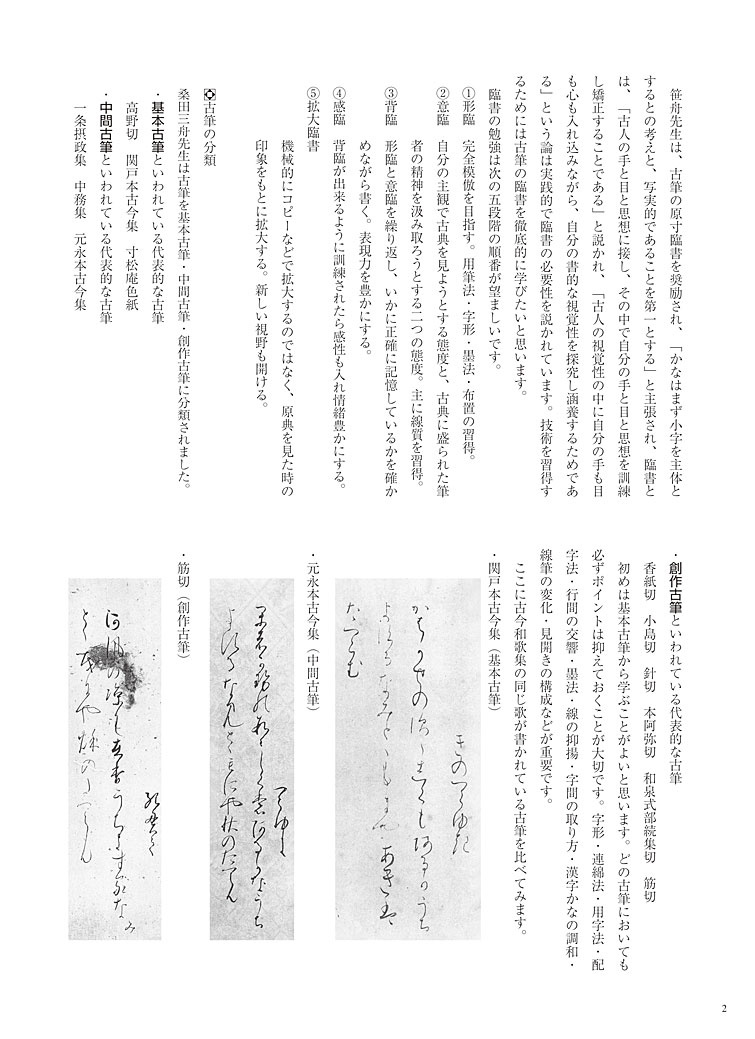 笹舟先生は、古筆の原寸臨書を奨励され、「かなはまず小字を主体と
するとの考えと、写実的であることを第一とする」と主張され、臨書と
は、「古人の手と目と思想に接し、その中で自分の手と目と思想を訓練
し矯正することである」と説かれ、「古人の視覚性の中に自分の手も目
も心も入れ込みながら、自分の書的な視覚性を探究し涵養するためであ
る」という論は実践的で臨書の必要性を説かれています。技術を習得す
るためには古筆の臨書を徹底的に学びたいと思います。
臨書の勉強は次の五段階の順番が望ましいです。
①形臨　完全模倣を目指す。用筆法・字形・墨法・布置の習得。
②意臨　自分の主観で古典を見ようとする態度と、古典に盛られた筆
者の精神を汲み取ろうとする二つの態度。主に線質を習得。
③背臨　形臨と意臨を繰り返し、いかに正確に記憶しているかを確か
めながら書く。表現力を豊かにする。
④感臨　背臨が出来るように訓練されたら感性も入れ情緒豊かにする。
⑤拡大臨書
機械的にコピーなどで拡大するのではなく、原典を見た時の
印象をもとに拡大する。新しい視野も開ける。
古筆の分類
桑田三舟先生は古筆を基本古筆・中間古筆・創作古筆に分類されました。
・基本古筆といわれている代表的な古筆
高野切　関戸本古今集　寸松庵色紙
・中間古筆といわれている代表的な古筆
一条摂政集　中務集　元永本古今集
・創作古筆といわれている代表的な古筆
香紙切　小島切　針切　本阿弥切　和泉式部続集切　筋切
初めは基本古筆から学ぶことがよいと思います。どの古筆においても
必ずポイントは抑えておくことが大切です。字形・連綿法・用字法・配
字法・行間の交響・墨法・線の抑揚・字間の取り方・漢字かなの調和・
線筆の変化・見開きの構成などが重要です。
ここに古今和歌集の同じ歌が書かれている古筆を比べてみます。
・関戸本古今集（基本古筆）
きのつらゆき
・元永本古今集（中間古筆）
・筋切（創作古筆）
2